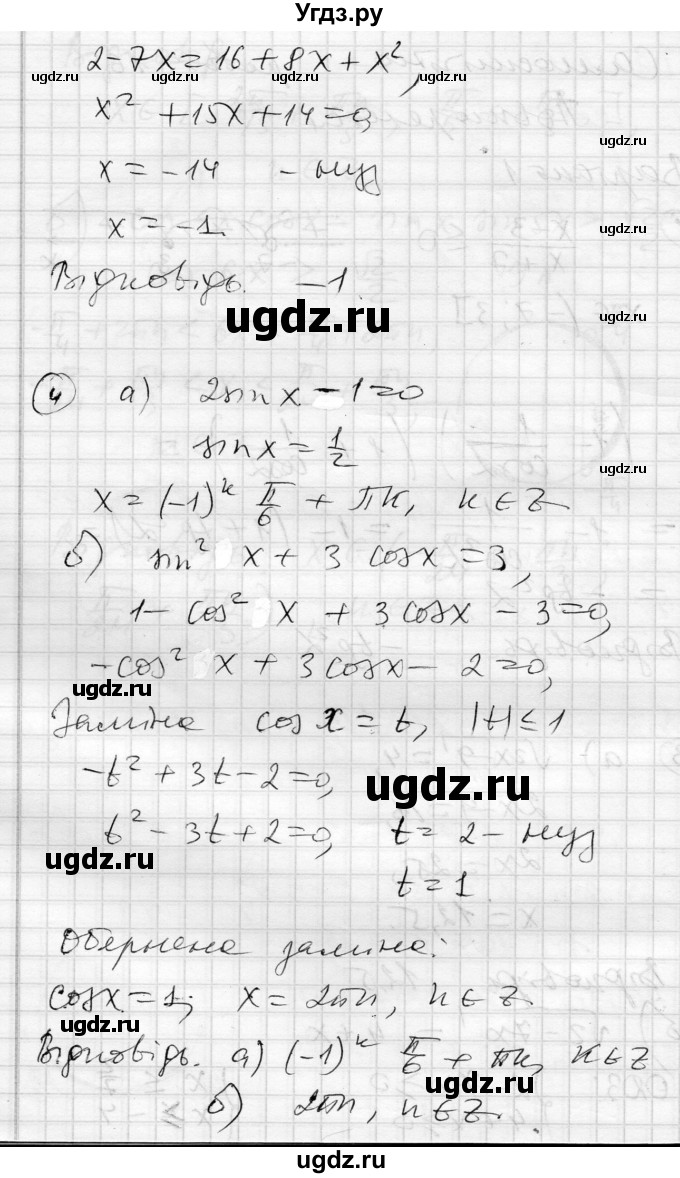 Угдз.ру
2 - 7x = 16 + 8x + x²,
x² + 15x + 14 = 0,
x = -14 - нуз
x = -1.
Відповідь. -1.
ugdz.ru
4 а) 2sin x - 1 = 0
sin x = 1/2
x = (-1)ᵏ π/6 + πk, k ∈ Z
б) sin² x + 3 cosx = 3,
1 - cos² x + 3 cosx - 3 = 0,
-cos² x + 3 cosx - 2 = 0,
ugdz.ru
Заміна cos x = t, |t| ≤ 1
-t² + 3t - 2 = 0,
ugdz.ru
t² - 3t + 2 = 0, t = 2 - нуз
ugdz.ru
t = 1.
Обернена заміна:
cosx = 1; x = 2πn, n ∈ Z.
ugdz.ru
Відповідь. а) (-1)ᵏ π/6 + πk, k ∈ Z
б) 2πn, n ∈ Z.
ugdz.ru